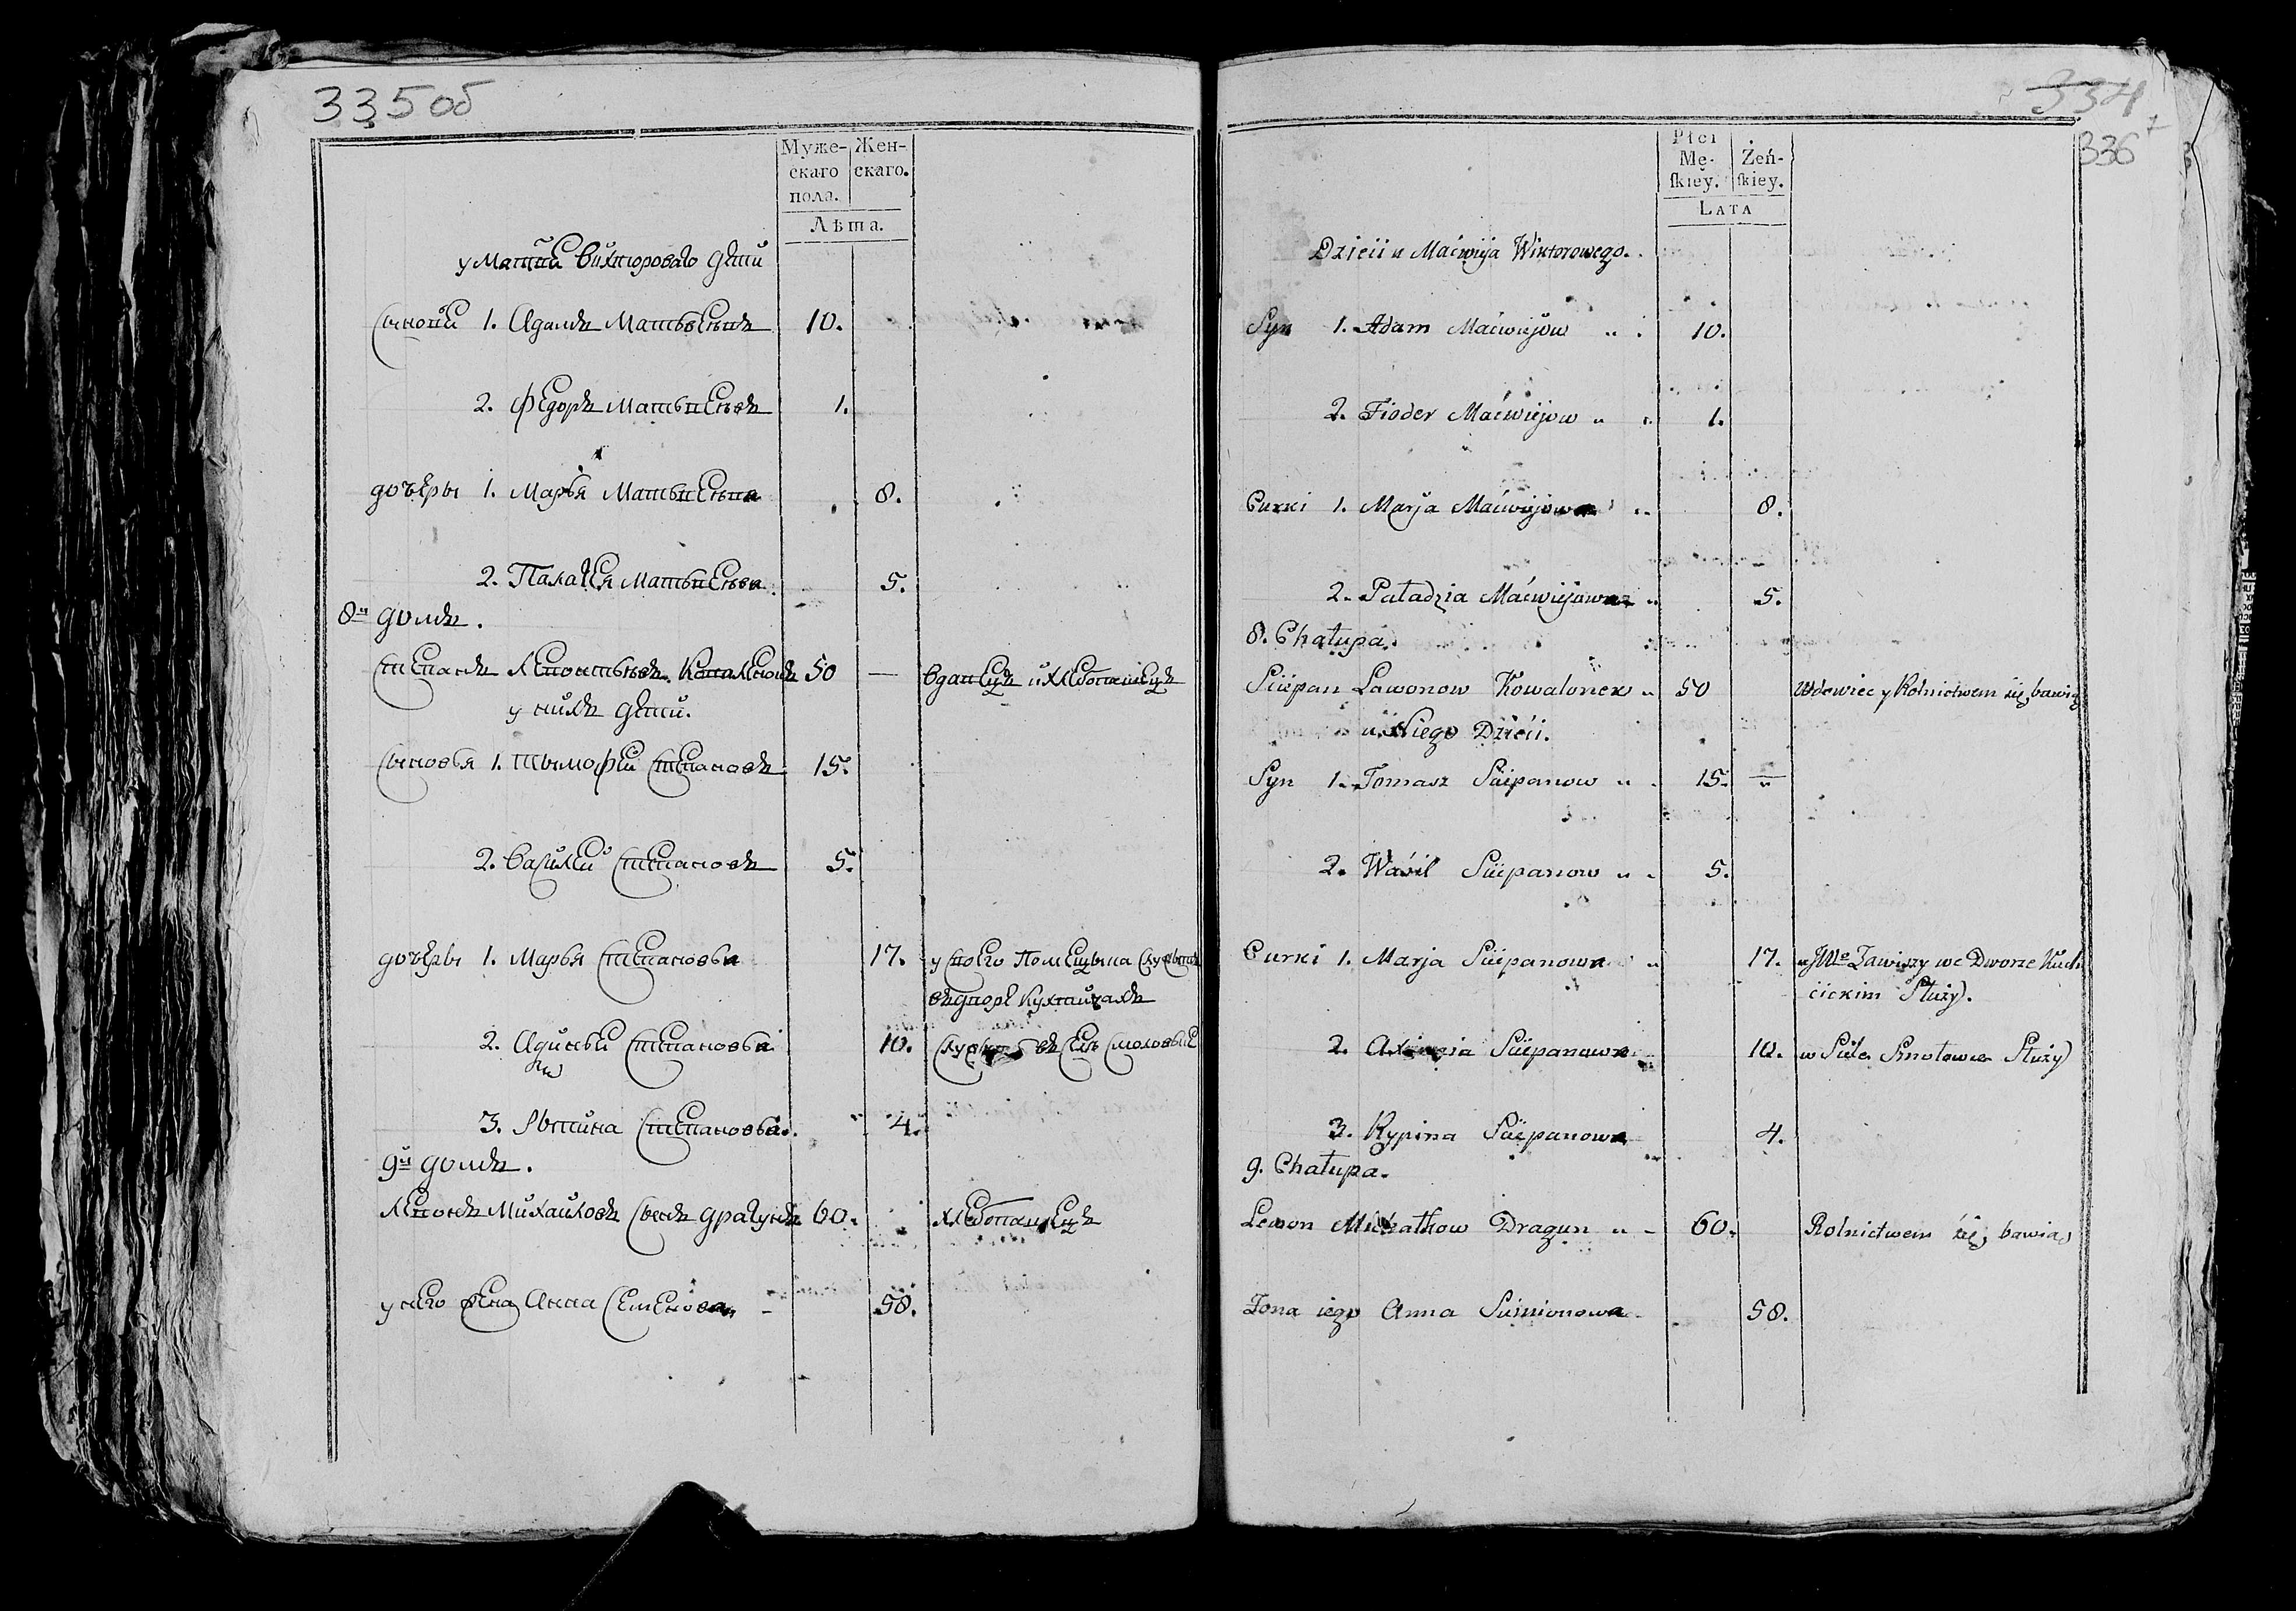 335 об
Муже-
скаго
пола.
Жен-
скаго.
Лѣта.
у Матвѣй Викторова го дѣти
Сыновѣй 1. Адамъ Матвѣевъ 10.
2. Федоръ Матвѣевъ 1.
дочеры 1. Марья Матвѣева 8.
2. Палагея Матвѣева 5.
8й домъ.
Степанъ Леонтьевъ Ковалюнъ 50 — вдавецъ и хлебопашецъ
у нихъ дѣти.
Сыновья 1. Тымофей Степановъ 15.
2. Василей Степановъ 5.
дочеры 1. Марья Степанова 17. у своего Помещыка служытъ
въ дворе Кухтичахъ
2. Степанова 10. въ селе Смоловые
3. Рыпина Степанова 4.
9й домъ.
Левонъ Михайловъ сынъ Драгунъ 60. хлебопашецъ
у него жена Анна Семенова 58.
334
336
Płci
Mę-
skiey.
Żeń-
skiey.
LATA
Dzieci u Maćwija Wiktorowego.
Syn 1. Adam Maćwiejow 10.
2. Fioder Maćwiejow 1.
Curki 1. Marja Maćwiejowa 8.
2. Paładzia Maćwiejowa 5.
8. Chałupa.
Sciepan Lawonow Kowalonek 50 Wdowiec y Rolnictwem się bawią
u Niego Dzieci.
Syn 1. Tomasz Sciepanow 15.
2. Waśil Sciepanow 5.
Curki 1. Marja Sciepanowa 17. u JWo Zawiszy we Dworze Kuch
cickim Służy.
2. Sciepanowa 10. w Siele Smołowce Służy
3. Rypina Sciepanowa 4.
9. Chałupa.
Lewon Michałkow Dragun 60. Rolnictwem się bawią
Żona iego Anna Siemionowa 58.